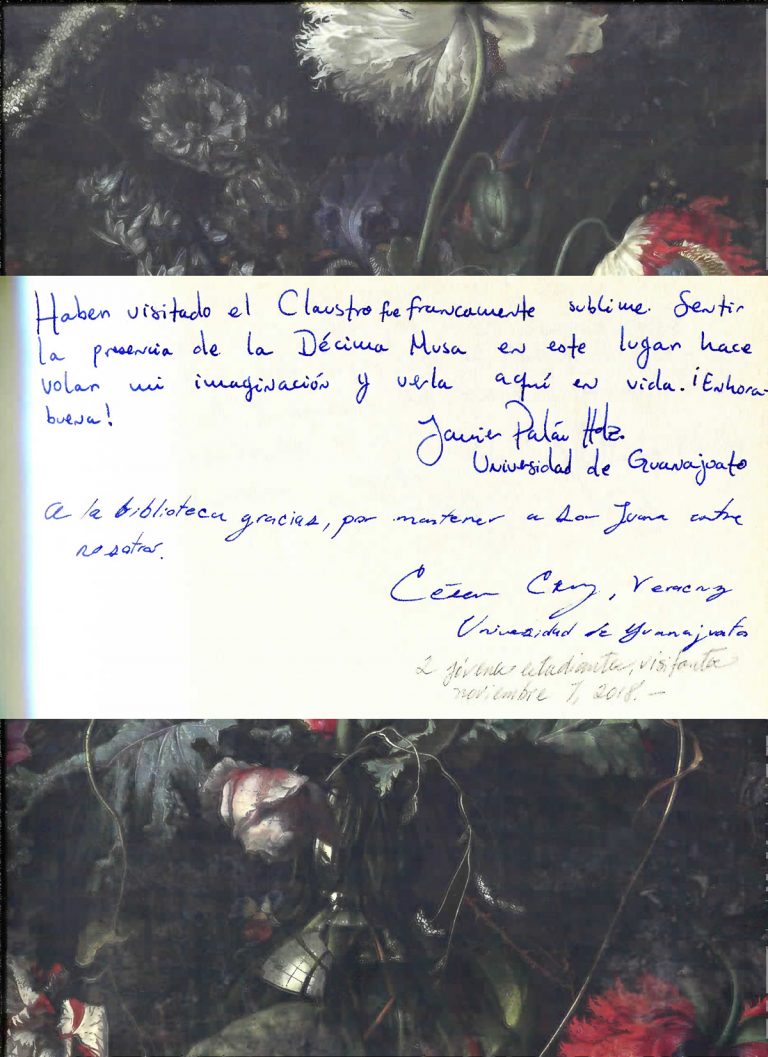 Haber visitado el Claustro fue francamente sublime. Sentir
la presencia de la Décima Musa en este lugar hace
volar mi imaginación y verla aquí en vida. ¡Enhora-
buena!
Javier Palán Hdz.
Universidad de Guanajuato
A la biblioteca gracias, por mantener a Sor Juana entre
nosotros.
César Cruz, Veracruz
Universidad de Guanajuato
2 jóvenes estudiantes, visitantes
noviembre 7, 2018.—